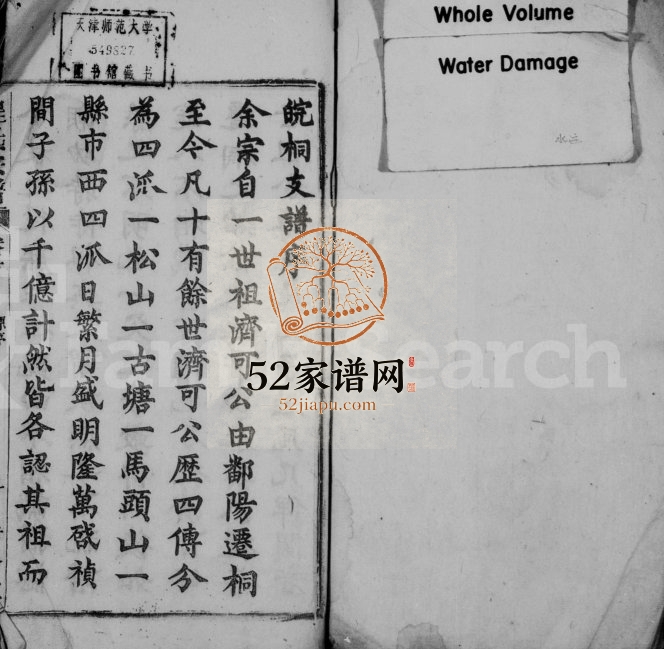 皖桐支譜序
余宗自一世祖濟可公由鄱陽遷桐
至今凡十有餘世濟可公歷四傳分
為四派一松山一古塘一馬頭山一
縣市西四派日繁月盛明隆萬啓禎
間子孫以千億計然皆各認其祖而
天津师范大学
549827
图书馆藏书
Whole Volume
Water Damage
水渍
FamilySearch
52家谱网
52jiapu.com